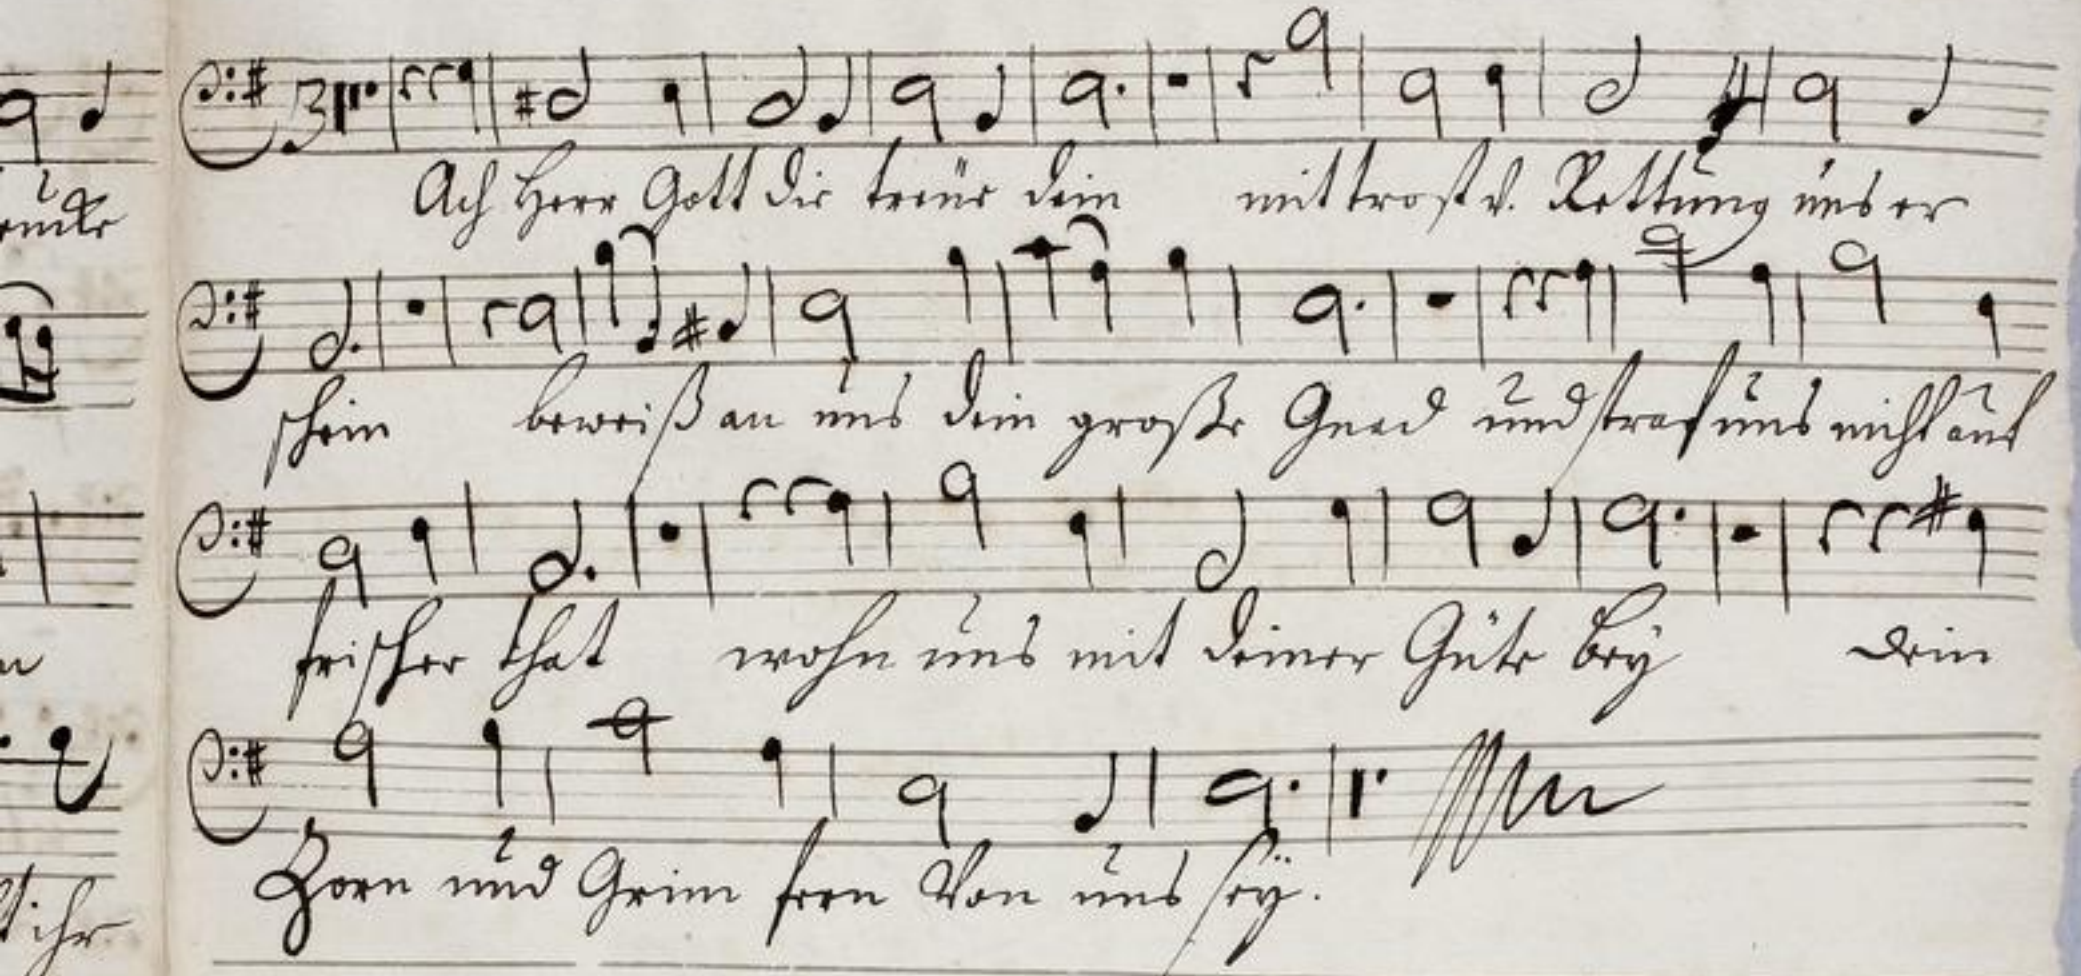 Ach Herr Gott dir treue dein mit trost v. Rettung uns er
schein beweiß an uns dein große Gnad und straf uns nicht auf
frischer that wohn uns mit deiner Güte bey dein
Zorn und Grim fern Von uns sey.
ihr